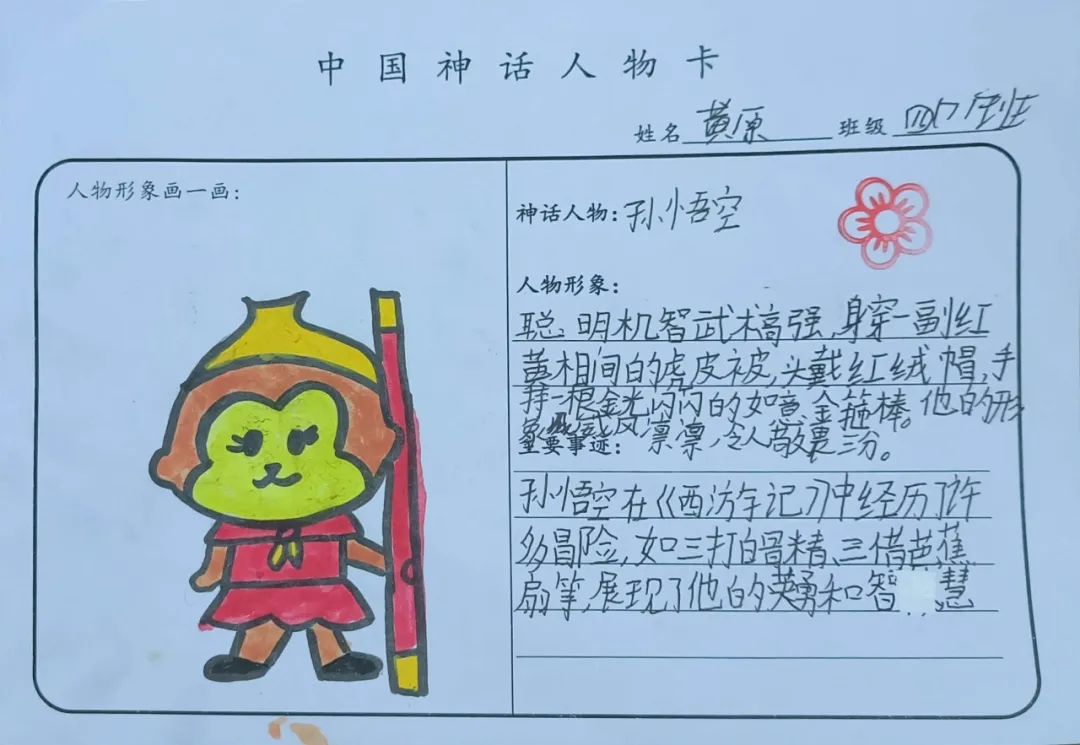 中国神话人物卡
姓名 黄原 班级 四(7)班
人物形象画一画:
神话人物: 孙悟空
人物形象:
聪明机智武功高强,身穿一副红
黄相间的虎皮被,头戴红绒帽,手
持一根金光闪闪的如意金箍棒。他的形
象威风凛凛,令人敬畏三分。
主要事迹:
孙悟空在《西游记》中经历了许
多冒险,如三打白骨精、三借芭蕉
扇等,展现了他的英勇和智慧